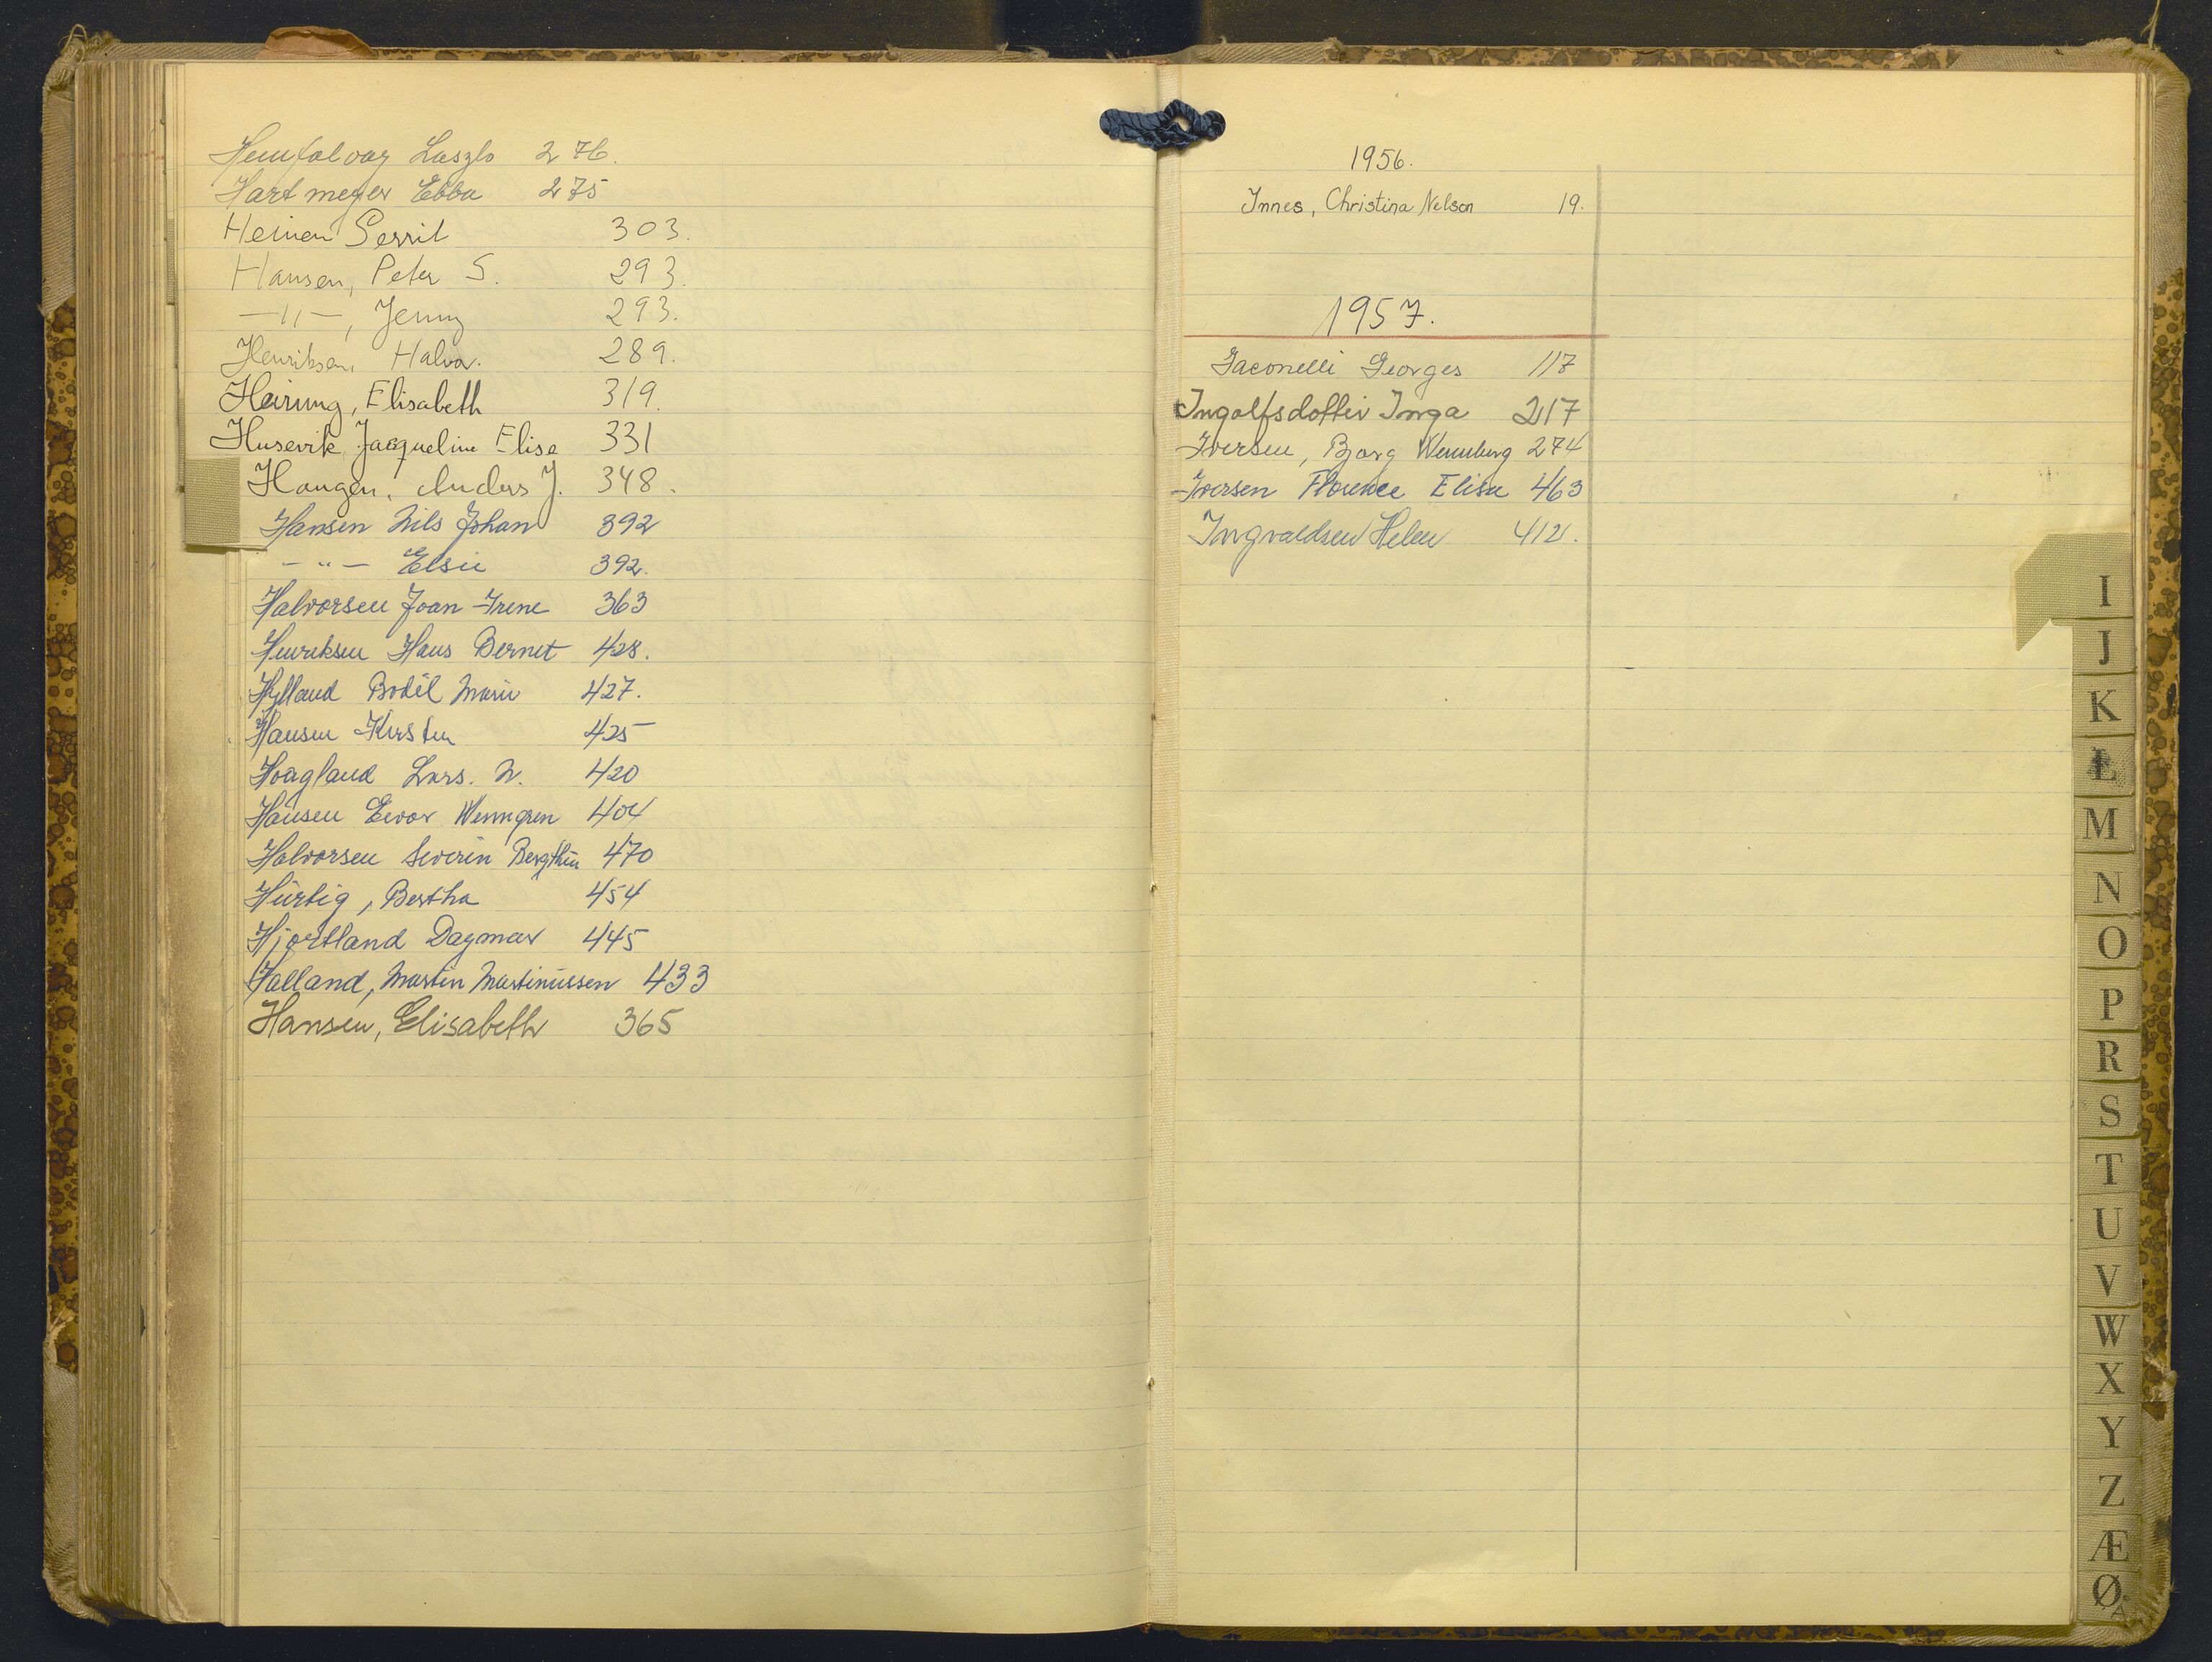 Hunfalvay Laszlo 276.
Hartmeyer Ebba 275
Heinen Gerrit 303.
Hansen, Peter S. 293.
—"—, Jenny 293.
Henriksen, Halvor. 289.
Heirung, Elisabeth 319.
Husevik Jacqueline Elise 331
Haugen, Anders J. 348.
Hansen Nils Johan 392
- " — Elsie 392.
Halvorsen Joan Irene 363
Henriksen Hans Bernet 428.
Hylland Bodil Marie 427.
Hansen Kirsten 425
Hoagland Lars. N. 420
Hansen Eivor Wenngren 404
Halvorsen Severin Bergthin 470
Hürtig, Bertha 454
Hjortland Dagmar 445
Halland, Martin Martinussen 433
Hansen, Elisabeth 365
1956.
Innes, Christina Nelson 19.
1957.
Iaconelli Georges 117
Ingolfsdottir Inga 217
Iversen, Bjorg Wennberg 274
Iversen Florence Elise 463
Ingvaldsen Helen 412.
I
J
K
L
M
N
O
P
R
S
T
U
V
W
X
Y
Z
Æ
Ø
Å